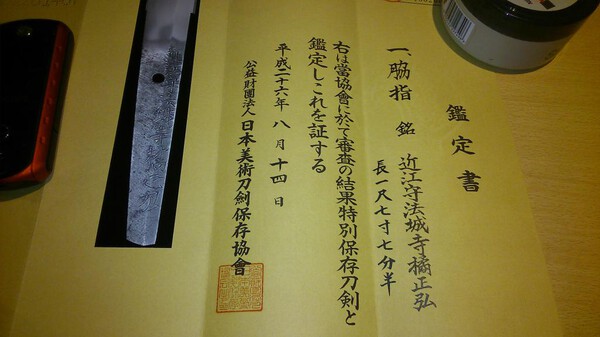 鑑定書
一、脇指 銘 近江守法城寺橘正弘
長一尺七寸七分半
右は當協會に於て審査の結果特別保存刀剣と
鑑定しこれを証する
平成二十六年八月十四日
公益財團法人日本美術刀劍保存協會